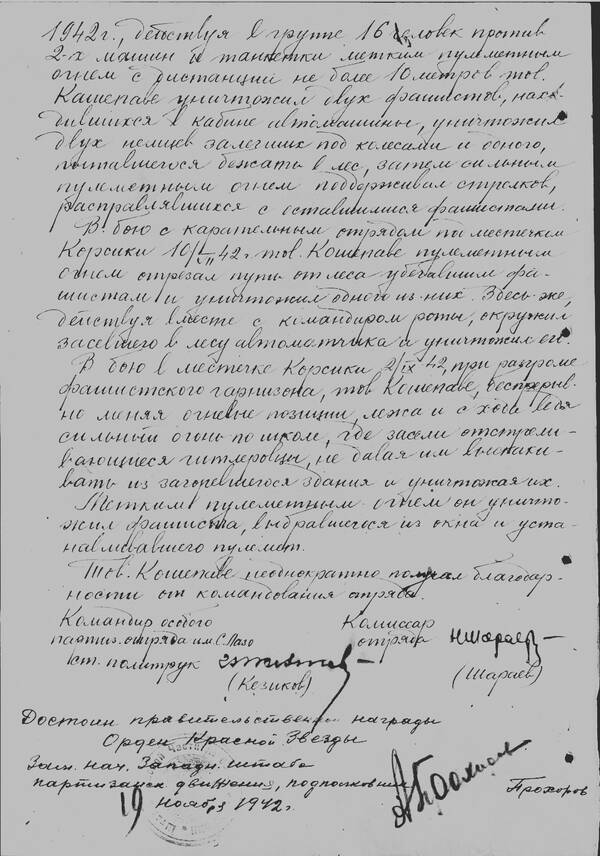 1942 г., действуя в группе 16 человек против
2-х машин и танкетки метким пулеметным
огнем с дистанции не более 10 метров тов.
Кошепаве уничтожил двух фашистов, нахо-
дившихся в кабине автомашины, уничтожил
двух немцев залегших под колесами и одного,
пытавшегося бежать в лес, затем сильным
пулеметным огнем поддерживал стрелков,
расправлявшихся с оставшимися фашистами.
В бою с карательным отрядом под местечком
Корсики 10/VII 42 г. тов. Кошепаве пулеметным
огнем отрезал путь от леса убегавшим фа-
шистам и уничтожил одного из них. Здесь же,
действуя вместе с командиром роты, окружил
засевшего в лесу автоматчика и уничтожил его.
В бою в местечке Корсики 2/IX 42, при разгроме
фашистского гарнизона, тов Кошепаве, беспрерыв-
но меняя огневые позиции, лежа и с хода ведя
сильный огонь по школе, где засели отстрели-
вающиеся гитлеровцы, не давая им выскаки-
вать из загоревшегося здания и уничтожая их.
Метким пулеметным огнем он уничто-
жил фашиста, выбравшегося из окна и уста-
навливавшего пулемет.
Тов. Кошепаве неоднократно получал благодар-
ности от командования отряда.
Командир особого Комиссар
партиз. отряда им. С. Лазо отряда
ст. политрук
(Кезиков) (Шараев)
Достоин правительственной награды
Орден Красной Звезды
Зам. нач. Западн. штаба
партизанск движения, подполковник Прохоров
19 ноября 1942 г.